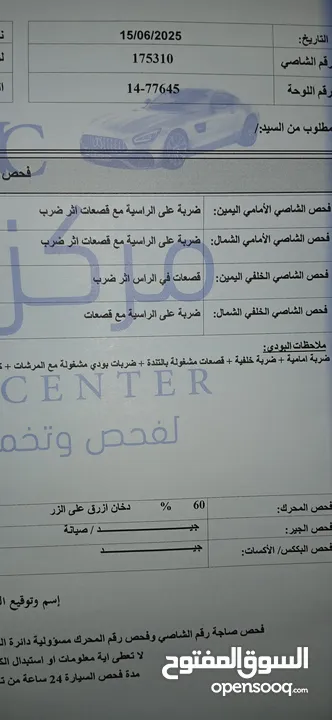 التاريخ: 15/06/2025
رقم الشاصي 175310
رقم اللوحة 14-77645
مطلوب من السيد:/
C
فحص
مركز
فحص الشاصي الأمامي اليمين: ضربة على الراسية مع قصعات اثر ضرب
فحص الشاصي الأمامي الشمال: ضربة على الراسية مع قصعات اثر ضرب
فحص الشاصي الخلفي اليمين: قصعات في الراس اثر ضرب
فحص الشاصي الخلفي الشمال: ضربة على الراسية مع قصعات
ملاحظات البودي:
ضربة امامية + ضربة خلفية + قصعات مشغولة بالتندة + ضربات بودي مشغولة مع المرشات +
CENTER
لفحص وتخم
فحص المحرك: 60 % دخان ازرق على الزر
فحص الجير: جيــــــد / صيانة
فحص البكس/ الأكسات: جيــــــد
إسم وتوقيع
فحص صاجة رقم الشاصي وفحص رقم المحرك مسؤولية دائرة
لا تعطى اية معلومات او استبدال
مدة فحص السيارة 24 ساعة من
السوق المفتوح
opensooq.com